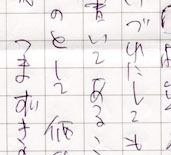 いづれにしても
いてある
のとして価
つまずき